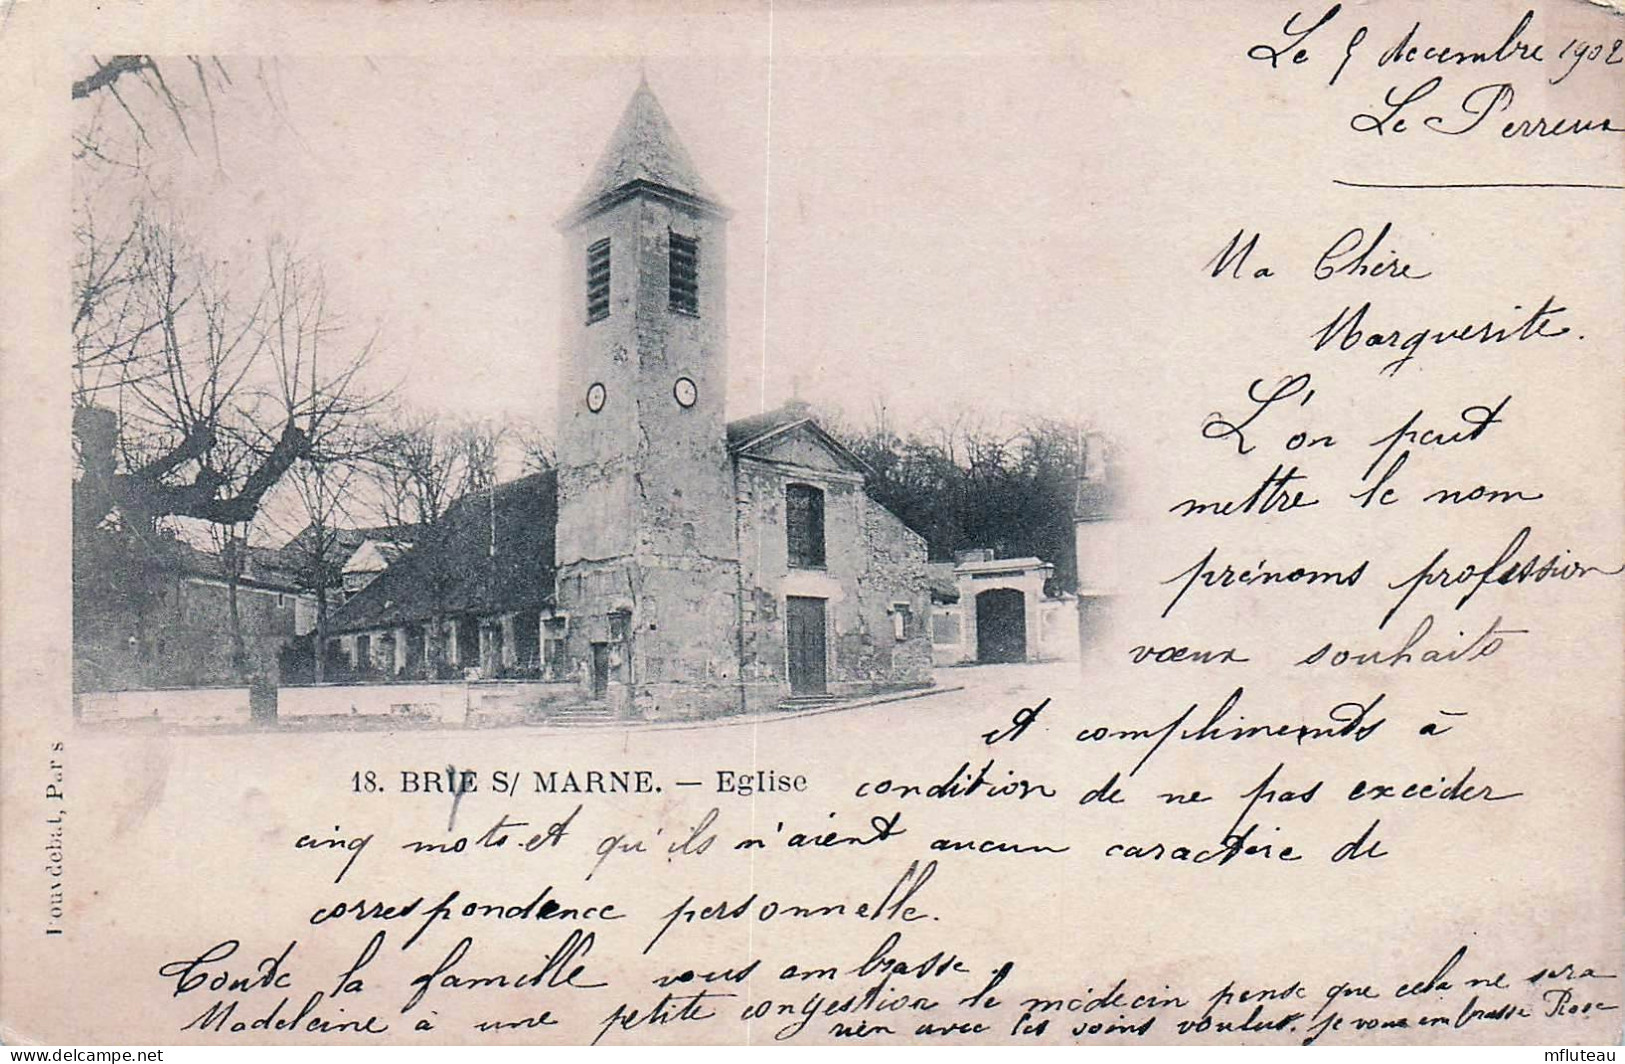 Le 5 decembre 1902
Le Perreux
Ma Chère
Marguerite.
L'on peut
mettre le nom
prénoms profession
vœux souhaits
et compliments à
18. BRIE S/ MARNE. — Eglise
condition de ne pas excéder
cinq mots et qu'ils n'aient aucun caractère de
correspondence personnelle.
Toute la famille vous embrasse.
Madeleine à une petite congestion le médecin pense que cela ne sera
rien avec les soins voulus. Je vous embrasse Rose
Paris
mfluteau